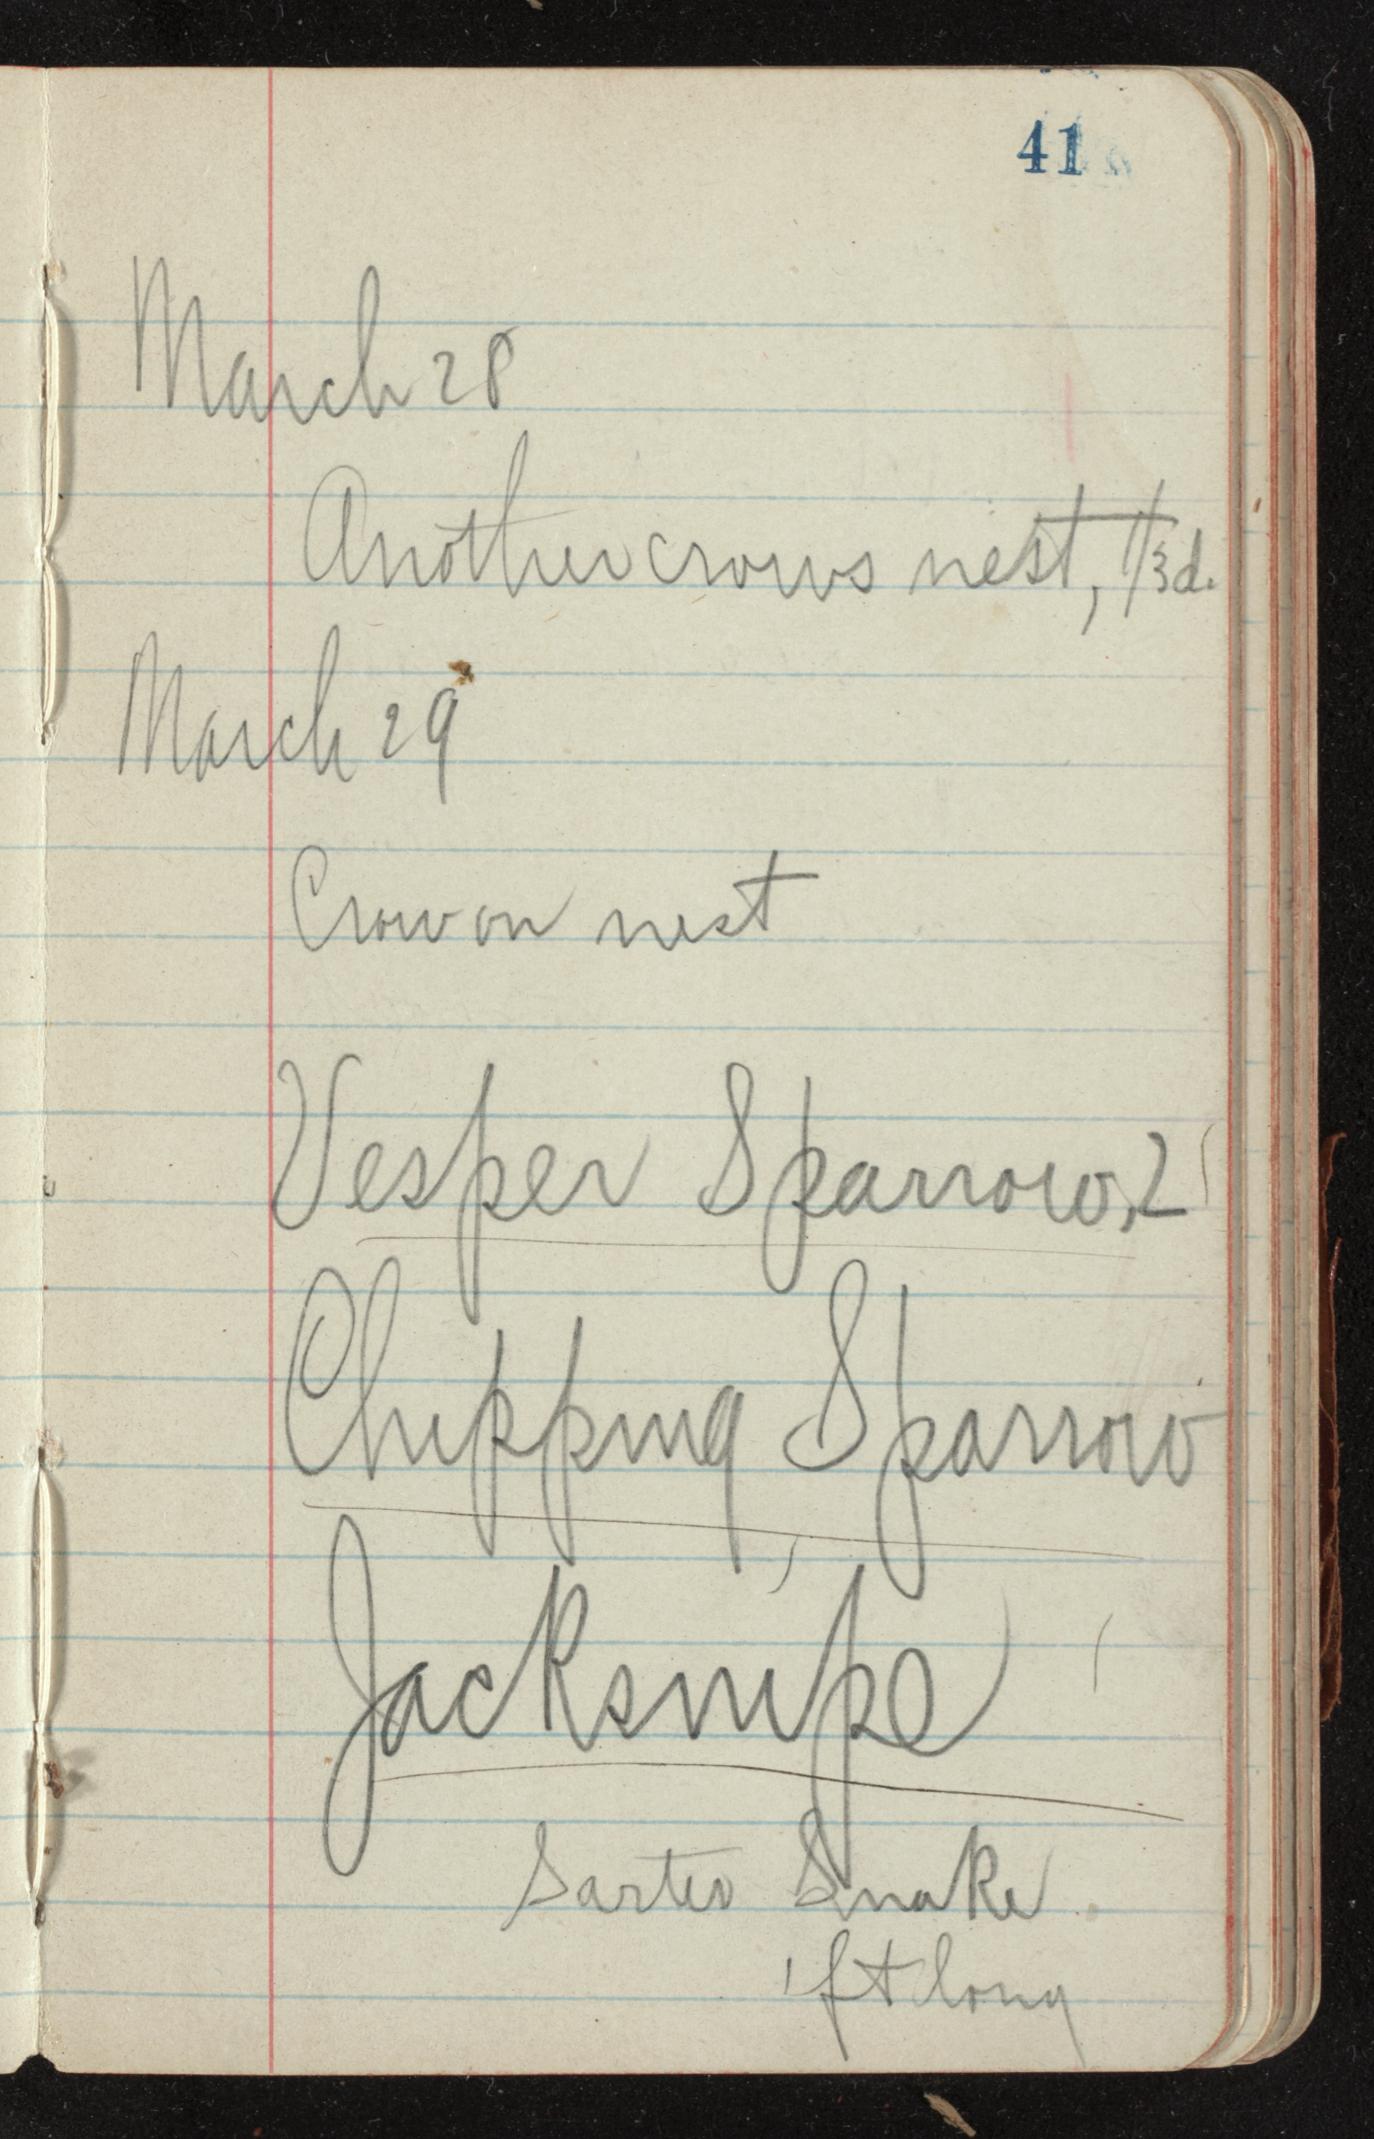 41
March 28
Another crows nest, 1/3 d.
March 29
Crow on nest
Vesper Sparrow, 2
Chipping Sparrow
Jacksnipe
Garter Snake
1 ft long